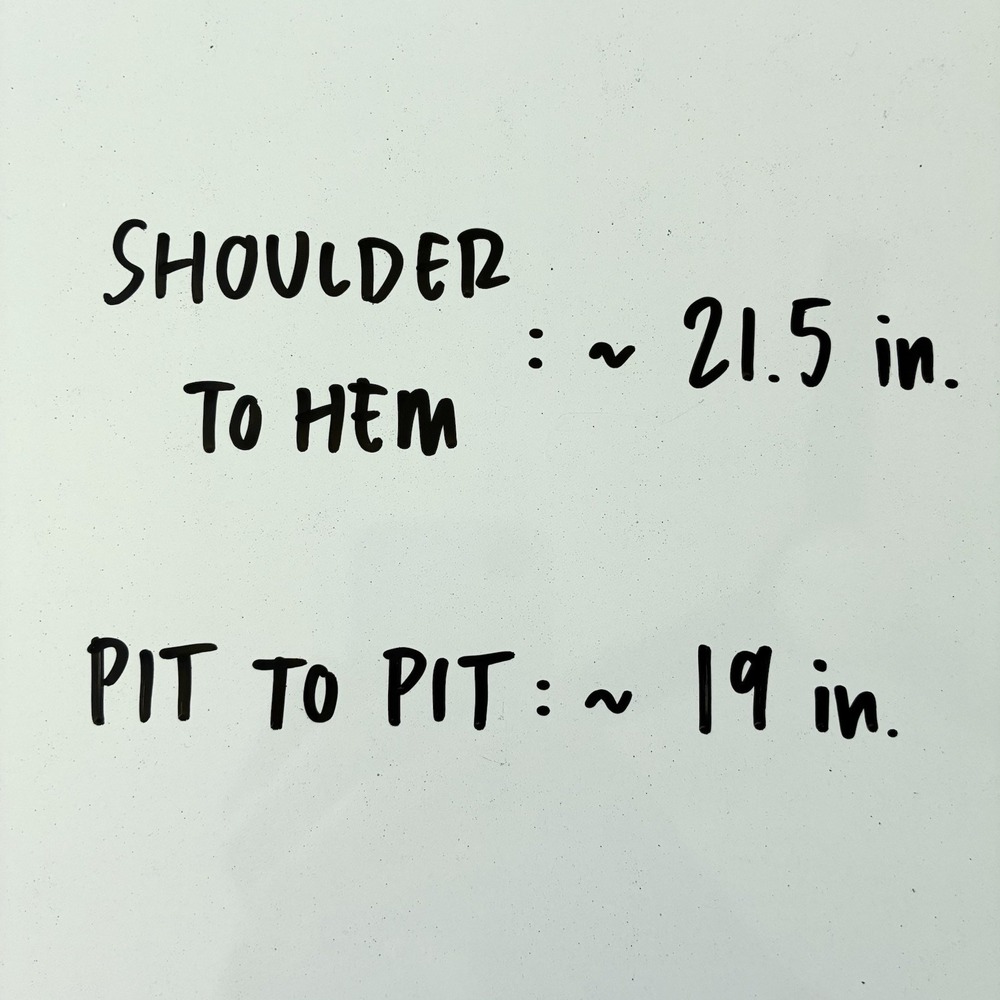 SHOULDER
TO HEM : ~ 21.5 in.
PIT TO PIT : ~ 19 in.